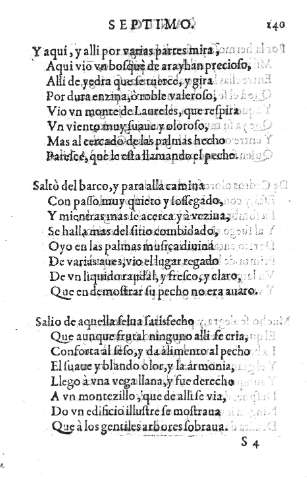 SEPTIMO. 140
Y aqui, y alli por varias partes mira,
Aqui vio vn bosque de arayhan precioso,
Alli de yedra que se tuerce, y gira
Por dura enzina, ò roble valeroso,
Vio vn monte de Laureles, que respira
Vn viento muy suaue y oloroso,
Mas al cercado de las palmas hecho
Paresce, que le esta llamando el pecho.
Saltò del barco, y para allà camina
Con passo muy quieto y sossegado,
Y mientras mas se acerca y à vezina,
Se halla mas del sitio combidado,
Oyo en las palmas musica diuina
De varias aues, vio el lugar regado
De vn liquido raudal, y fresco, y claro,
Que en demostrar su pecho no era auaro.
Salio de aquella selua satisfecho
Que aunque frutal ninguno alli se cria,
Conforta al seso, y da alimento al pecho
El suaue y blando olor, y la armonia,
Llegò à vna vega llana, y fue derecho
A vn montezillo, que de alli se via,
Do vn edificio illustre se mostraua
Que à los gentiles arbores sobraua.
S 4